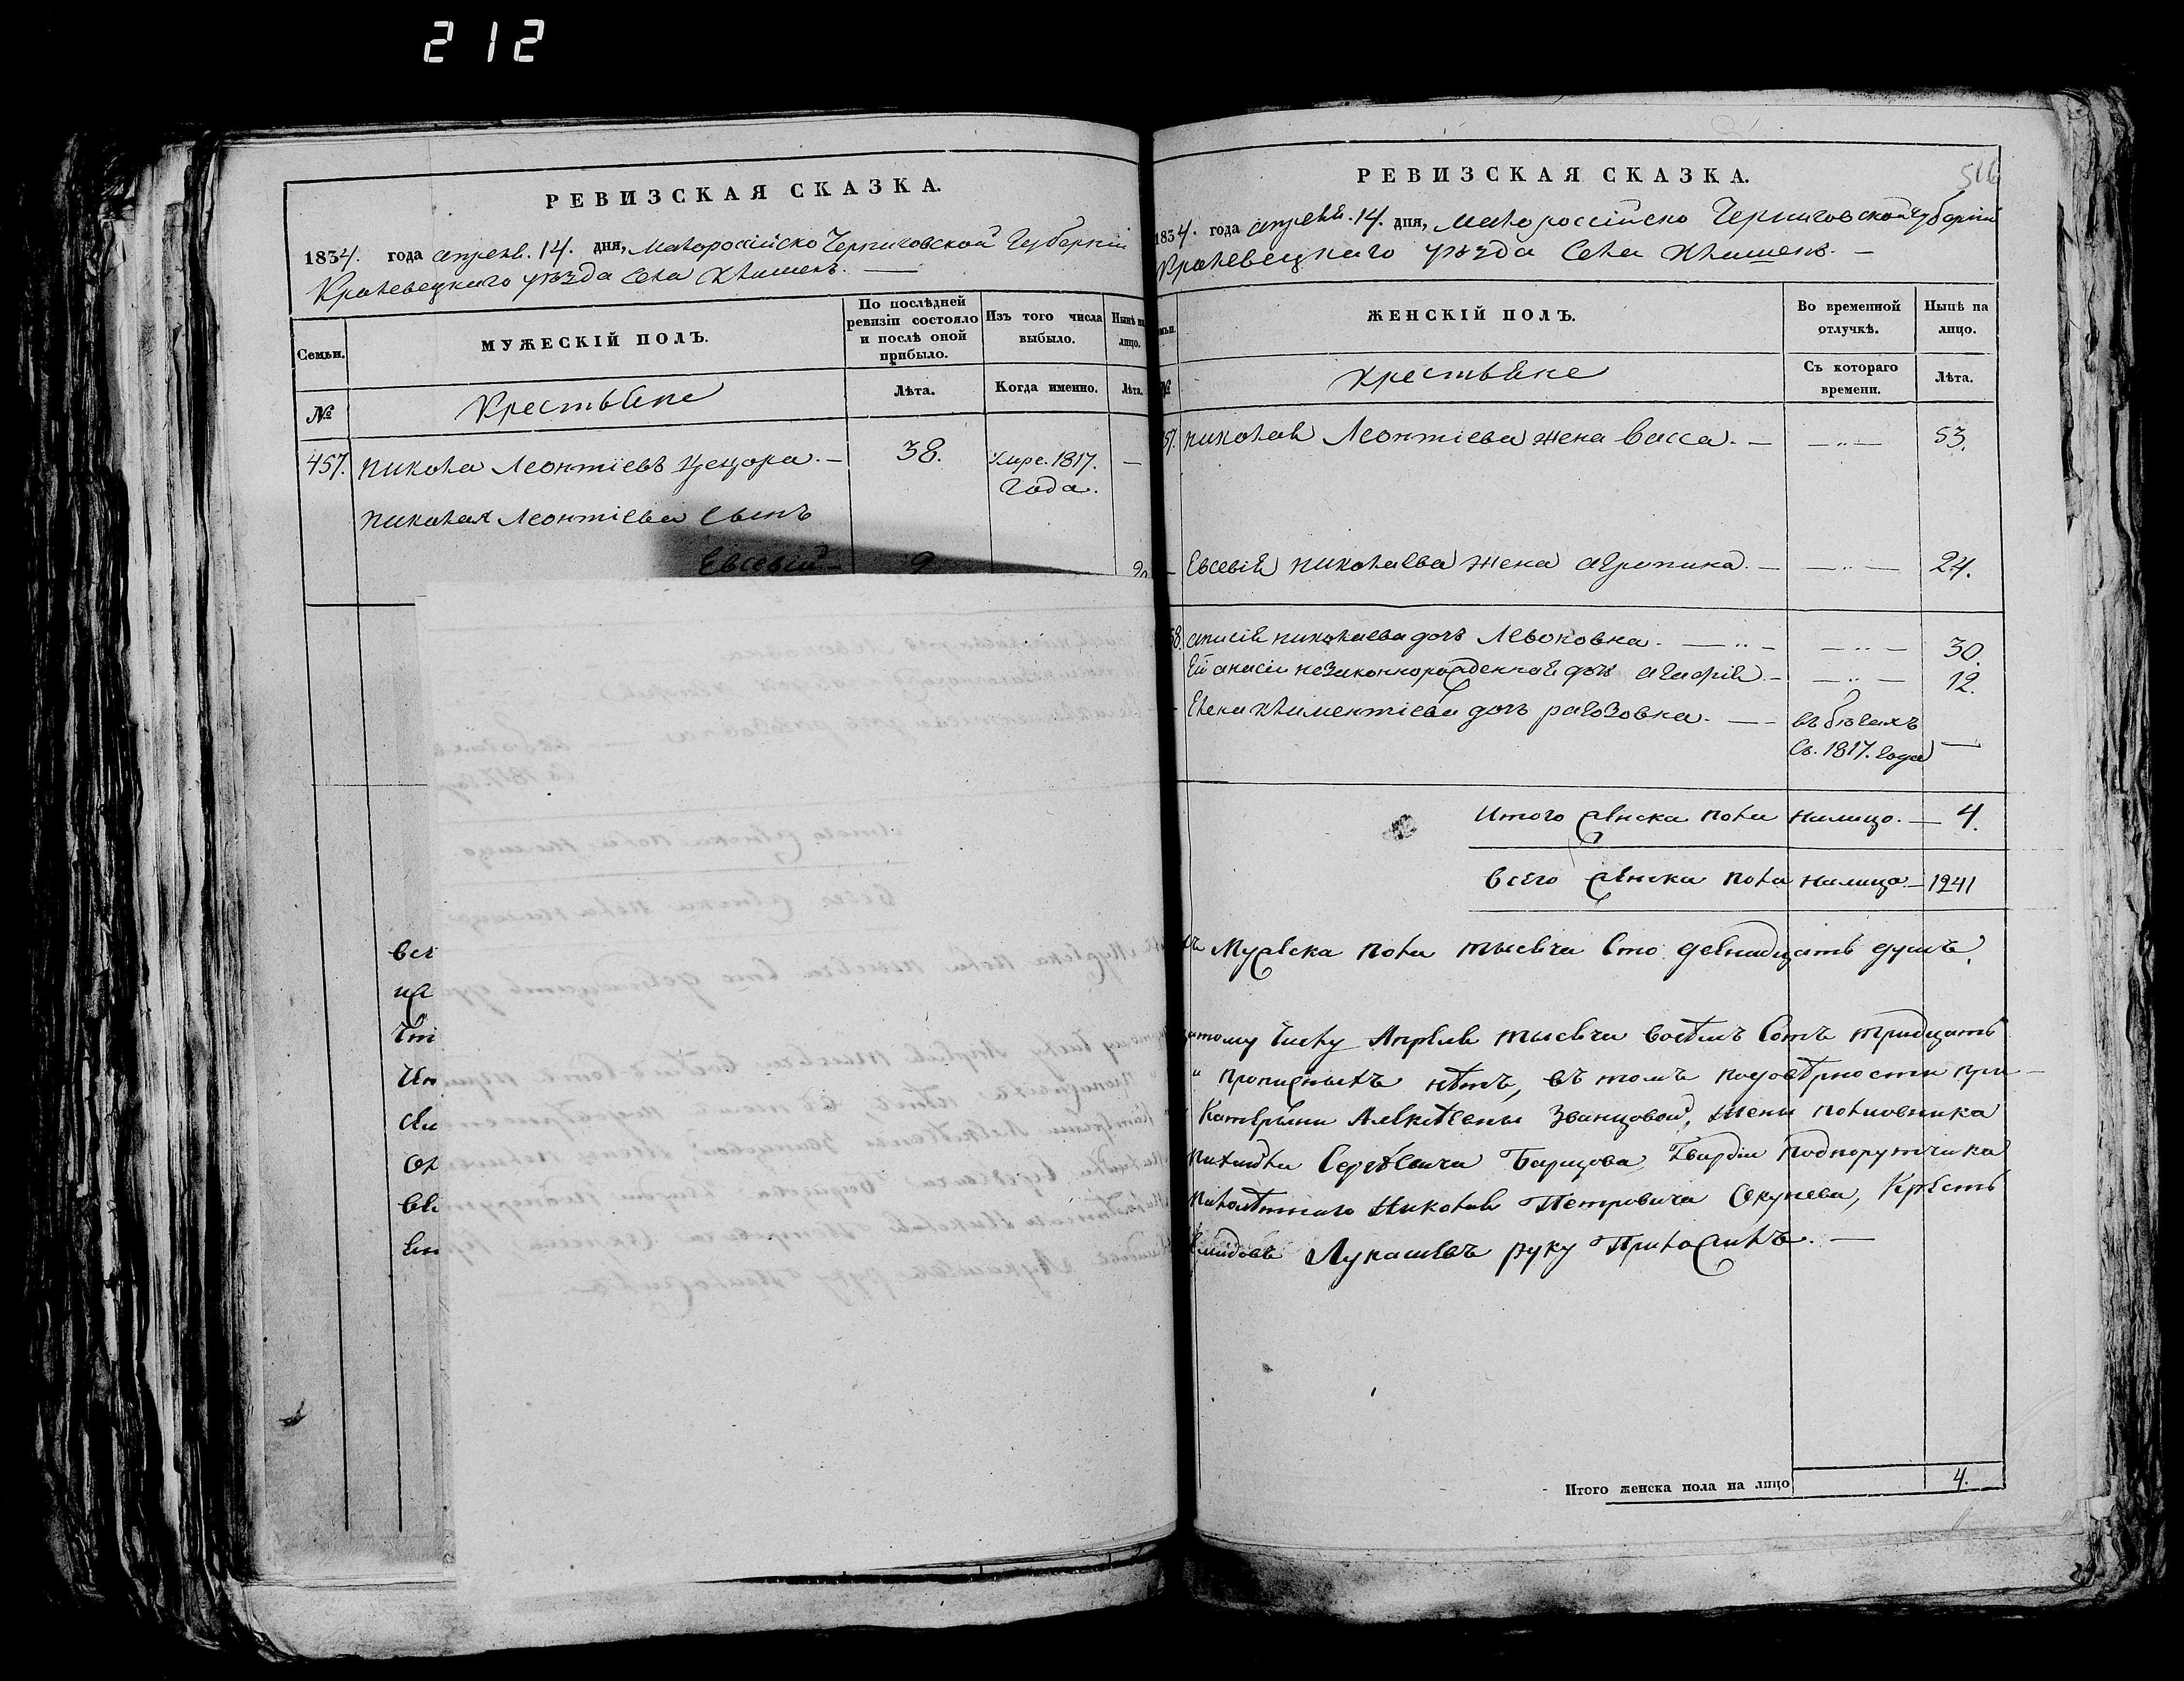 212
РЕВИЗСКАЯ СКАЗКА.
1834. года апреля. 14. дня, Малороссійско Черниговской Губерніи
Кролевецкаго уѣзда Села Клишекъ. —
Семьи.
МУЖЕСКІЙ ПОЛЪ.
По послѣдней ревизіи состояло и послѣ оной прибыло.
Изъ того числа выбыло.
Нынѣ на лицо.
№
Крестьяне
Лѣта.
Когда именно.
Лѣта.
457. Никола Леонтіевъ — 38. Умре. 1817. года. —
Николая Леонтіева сынъ
Евсевій — 9
РЕВИЗСКАЯ СКАЗКА.
516
1834. года апреля. 14. дня, Малороссійско Черниговской губерніи
Кролевецкаго уѣзда Села Клишекъ. —
ЖЕНСКІЙ ПОЛЪ.
Во временной отлучкѣ.
Нынѣ на лицо.
№
Крестьяне
Съ котораго времени.
Лѣта.
57. Николая Леонтіева жена Васса. — — „ — 53.
Евсевія Николаева жена Агрипина. — — „ — 24.
58. Анисія Николаева дочь Левоновна. — „ — — „ — 30.
Ей Анисіи незаконнорожденная дочь Агафія. — — „ — 12.
Елена Климентіева дочь Рагозовна. — въ бѣгахъ
Съ. 1817. года —
Итого женска пола налицо. — 4.
Всего женска пола налицо — 1241
Мужеска пола тысяча сто двенадцать душъ.
атому числу Апреля тысяча восѣмъ сотъ тридцать
„ прописныхъ нѣтъ, въ томъ подовѣрности при
Катерыны Алексѣевны Званцовой, жены полковника
Сергѣевича Борщова, Гвардіи подпорутчика
Николая Петровича Окунева, Крѣсть
Лукашевъ руку приложилъ. —
Итого женска пола на лицо 4.